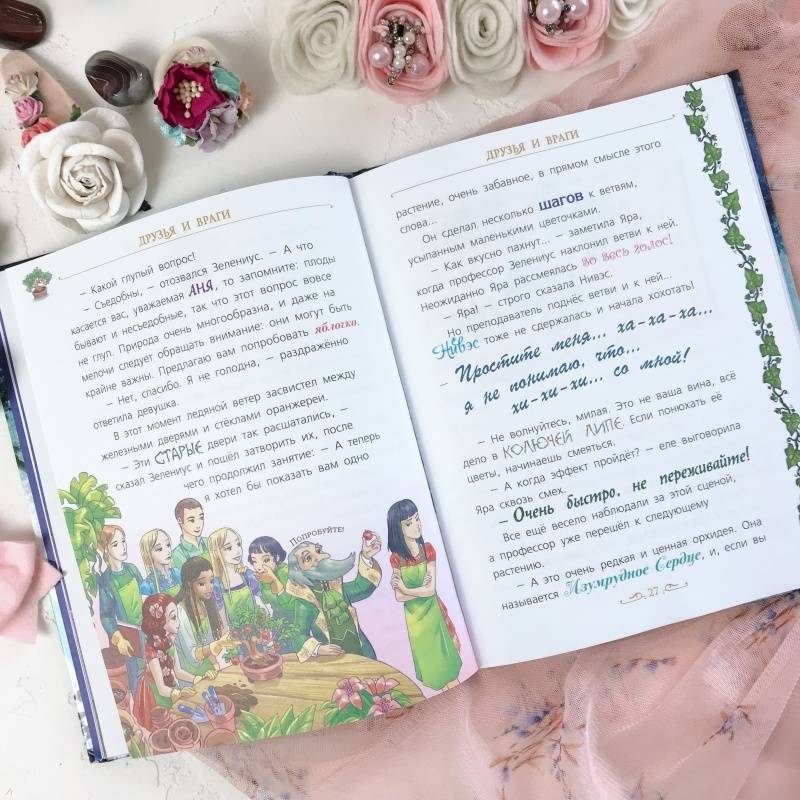 ДРУЗЬЯ И ВРАГИ
– Какой глупый вопрос!
– Съедобны, – отозвался Зелениус. – А что
касается вас, уважаемая АНЯ, то запомните: плоды
бывают и несъедобные, так что этот вопрос вовсе
не глуп. Природа очень многообразна, и даже на
мелочи следует обращать внимание: они могут быть
крайне важны. Предлагаю вам попробовать яблочко.
– Нет, спасибо. Я не голодна, – раздражённо
ответила девушка.
В этот момент ледяной ветер засвистел между
железными дверями и стёклами оранжереи.
– Эти СТАРЫЕ двери так расшатались, –
сказал Зелениус и пошёл затворить их, после
чего продолжил занятие: – А теперь
я хотел бы показать вам одно
ПОПРОБУЙТЕ!
ДРУЗЬЯ И ВРАГИ
растение, очень забавное, в прямом смысле этого
слова...
Он сделал несколько шагов к ветвям,
усыпанным маленькими цветочками.
– Как вкусно пахнут... – заметила Яра,
когда профессор Зелениус наклонил ветви к ней.
Неожиданно Яра рассмеялась во весь голос!
– Яра! – строго сказала Нивэс.
Но преподаватель поднёс ветви и к ней...
Нивэс тоже не сдержалась и начала хохотать!
– Простите меня... ха-ха-ха...
я не понимаю, что...
хи-хи-хи... со мной!
– Не волнуйтесь, милая. Это не ваша вина, всё
дело в КОЛЮЧЕЙ ЛИПЕ. Если понюхать её
цветы, начинаешь смеяться.
– А когда эффект пройдёт? – еле выговорила
Яра сквозь смех.
– Очень быстро, не переживайте!
Все ещё весело наблюдали за этой сценой,
а профессор уже перешёл к следующему
растению.
– А это очень редкая и ценная орхидея. Она
называется Изумрудное Сердце, и, если вы
27